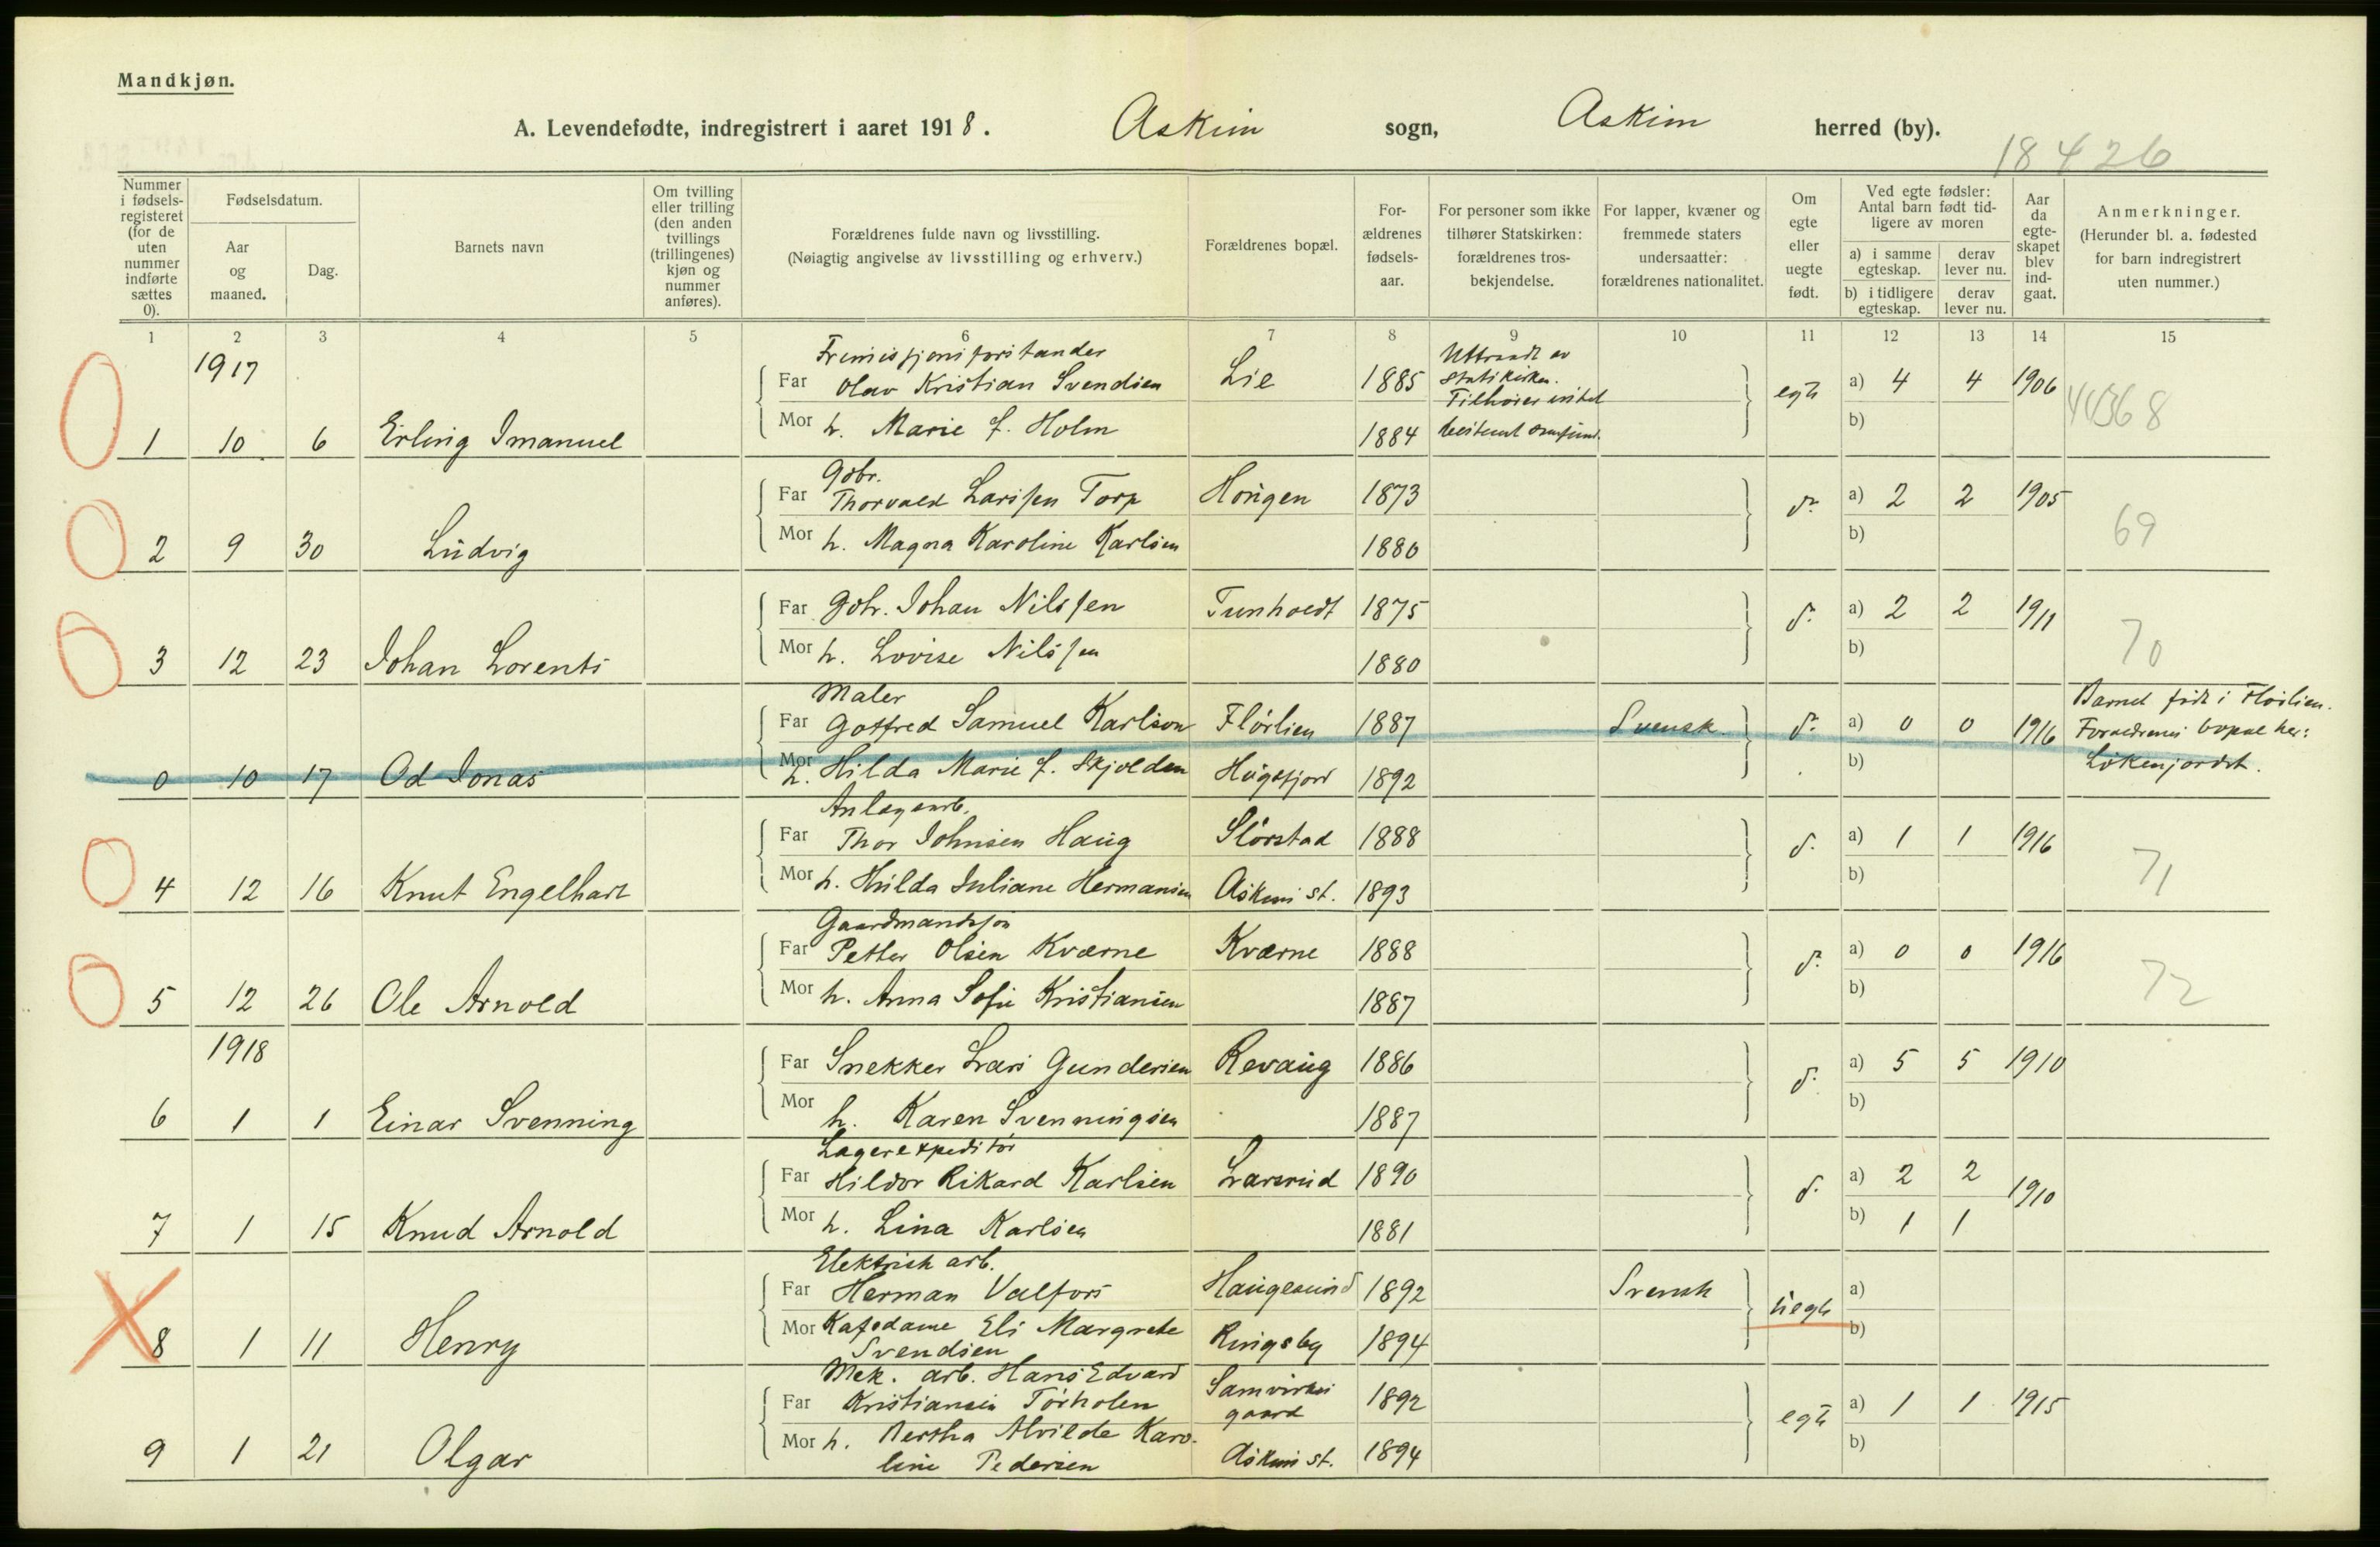 Mandkjøn.
A. Levendefødte, indregistrert i aaret 1918. Askim sogn, Askim herred (by).
18426
Nummer i fødselsregisteret (for de uten nummer indførte sættes 0).
Fødselsdatum.
Aar og maaned.
Dag.
Barnets navn
Om tvilling eller trilling (den anden tvillings (trillingenes) kjøn og nummer anføres).
Forældrenes fulde navn og livsstilling.
(Nøiagtig angivelse av livsstilling og erhverv.)
Forældrenes bopæl.
For-ældrenes fødsels-aar.
For personer som ikke tilhører Statskirken: forældrenes tros-bekjendelse.
For lapper, kvæner og fremmede staters undersaatter: forældrenes nationalitet.
Om egte eller uegte født.
Ved egte fødsler: Antal barn født tid-ligere av moren
a) i samme egteskap.
derav lever nu.
b) i tidligere egteskap.
derav lever nu.
Aar da egte-skapet blev ind-gaat.
Anmerkninger.
(Herunder bl. a. fødested for barn indregistrert uten nummer.)
1 2 3 4 5 6 7 8 9 10 11 12 13 14 15
1917
Frimisjonsforstander
Far Olav Kristian Svendsen Lie 1885 Uttraadt av statskirken. Tilhører intet egte a) 4 4 1906
Mor h. Marie f. Holm 1884 bestemt samfund. b)
1 10 6 Erling Imanuel 44368
Gdbr.
Far Thorvald Larssen Torp Hougen 1873 do a) 2 2 1905
Mor h. Magna Karoline Karlsen 1880 b)
2 9 30 Ludvig 69
Far Gdbr. Johan Nilssen Tunhoedt 1875 do a) 2 2 1911
Mor h. Lovise Nilssen 1880 b)
3 12 23 Johan Lorents 70
Maler
Far Gotfred Samuel Karlson Flörlien 1887 Svensk do a) 0 0 1916
Mor h. Hilda Marie f. Skjolden 1892 b)
0 10 17 Od Jonas
Barnet født i Flörlien.
Forældrenes bopæl her:
Anlægsarb.
Far Thor Johnsen Haug Slörstad 1888 do a) 1 1 1916
Mor h. Hilda Juliane Hermansen Askim st. 1893 b)
4 12 16 Knut Engelhart 71
Gaardmandssøn
Far Petter Olsen Kværne Kværne 1888 do a) 0 0 1916
Mor h. Anna Sofie Kristiansen 1887 b)
5 12 26 Ole Arnold 72
1918
Far Snekker Lars Gundersen Revaug 1886 do a) 5 5 1910
Mor h. Karen Svenningsen 1887 b)
6 1 1 Einar Svenning
Lagerexpeditör
Far Hildor Rikard Karlsen Larsrud 1890 do a) 2 2 1910
Mor h. Lina Karlsen 1881 b) 1 1
7 1 15 Knud Arnold
Elektrisk arb.
Far Herman Valfors Haugesund 1892 Svensk uegte a)
Mor Kafedame Eli Margrete Svendsen Ringsby 1894 b)
8 1 11 Henry
Mek. arb. Hans Edvard
Far Kristiansen Torholen Samvirkegaard 1892 egte a) 1 1 1915
Mor h. Bertha Alvilde Karo-
line Pedersen Askim st. 1894 b)
9 1 21 Olgar